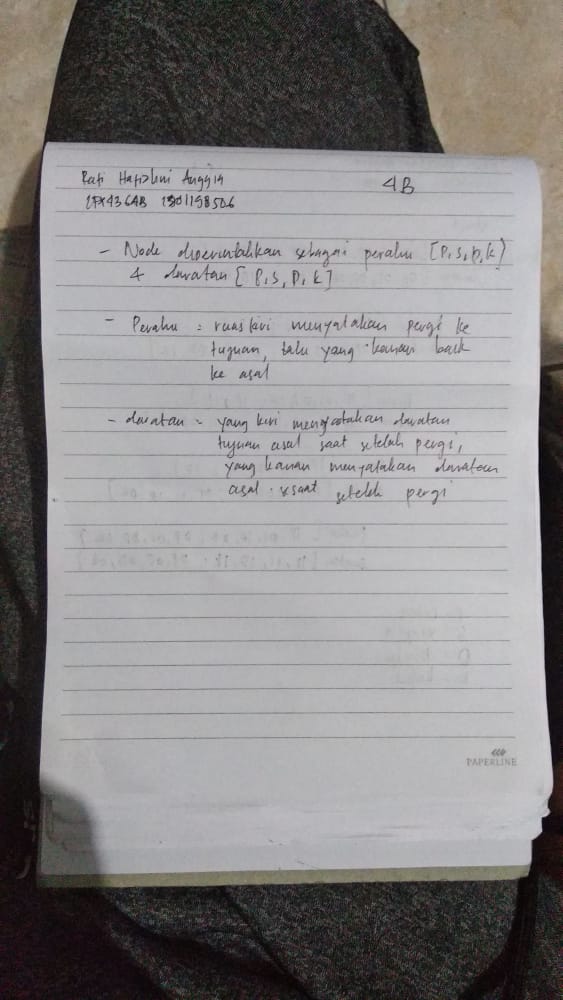 Rafi Hafizhni Anggia 4B
1301198506
- Node diperintahkan sebagai perahu [P,S,p,k]
& daratan [P,S,P,k]
- Perahu = ruas kiri menyatakan pergi ke
tujuan, lalu yang kanan back
ke asal
- daratan = yang kiri menyatakan daratan
tujuan asal saat setelah pergi,
yang kanan menyatakan daratan
asal saat setelah pergi
PAPERLINE